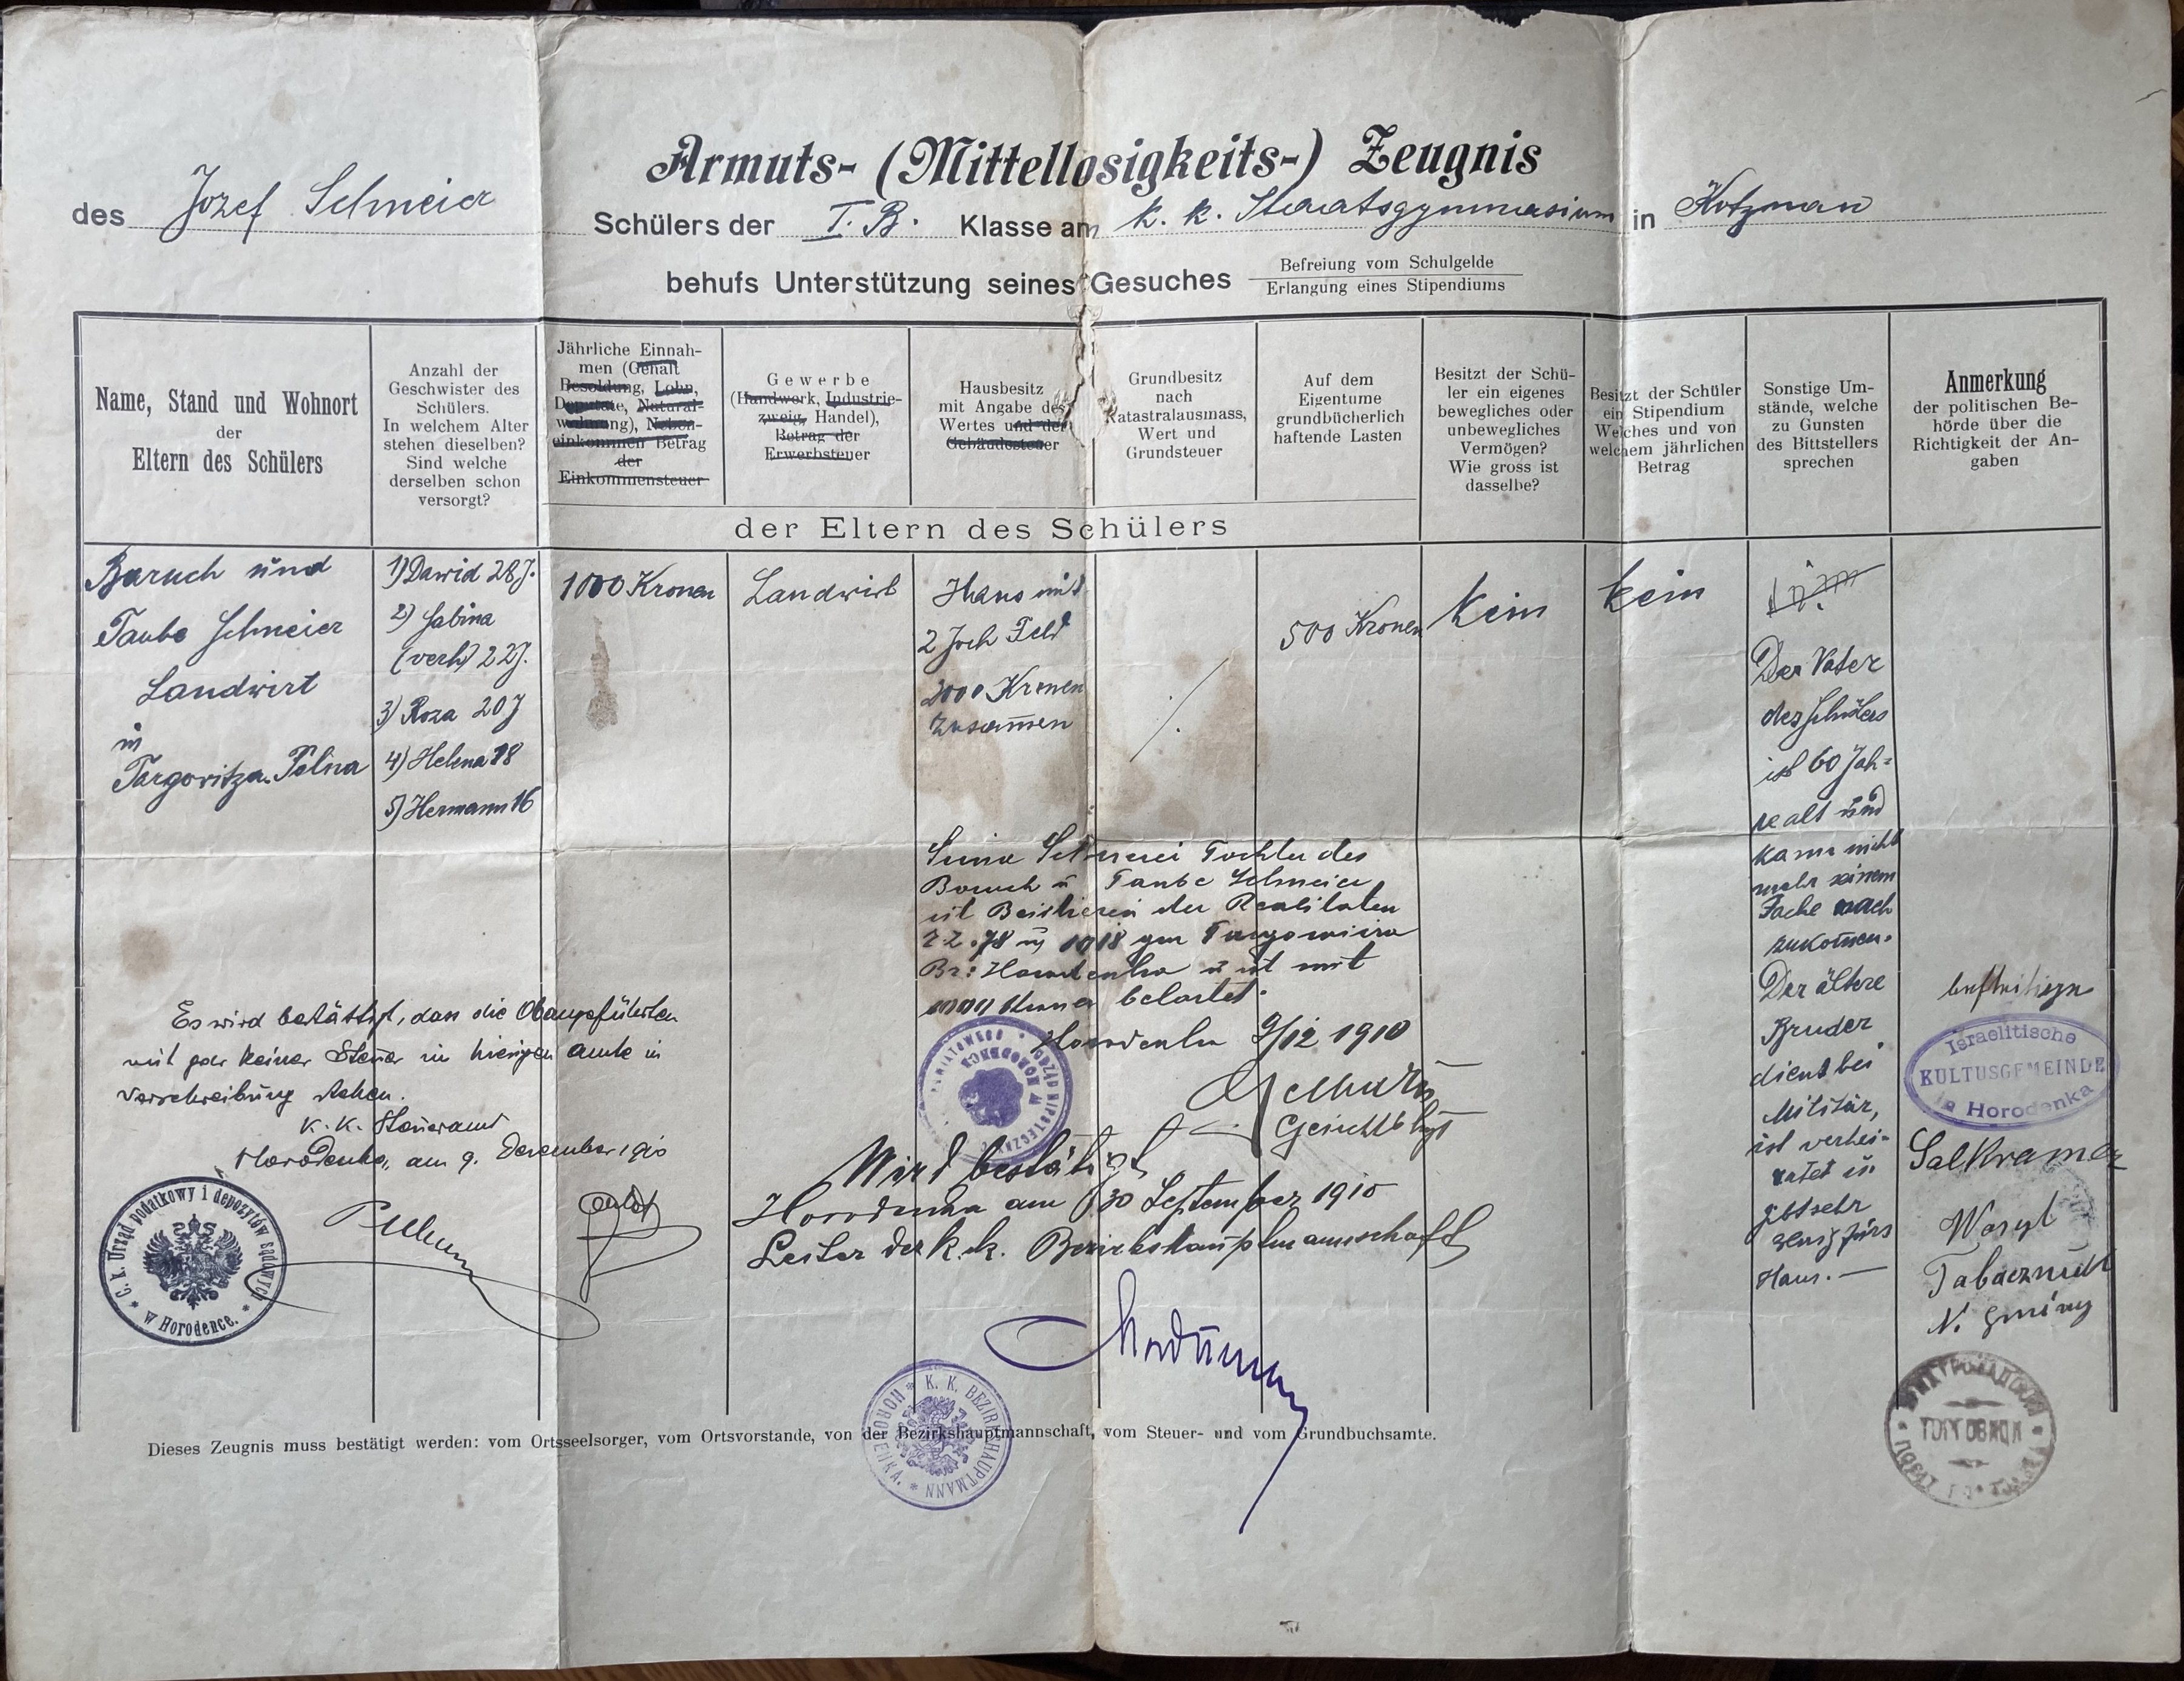 Armuts- (Mittellosigkeits-) Zeugnis
des Jozef Schmeier Schülers der I. B. Klasse am k. k. Staatsgymnasium in Kotzman
behufs Unterstützung seines Gesuches
Befreiung vom Schulgelde
Erlangung eines Stipendiums
Name, Stand und Wohnort
der
Eltern des Schülers
Anzahl der
Geschwister des
Schülers.
In welchem Alter
stehen dieselben?
Sind welche
derselben schon
versorgt?
Jährliche Einnah-
men (Gehalt
Besoldung, Lohn,
Deputate, Natural-
wohnung), Neben-
einkommen Betrag
der
Einkommensteuer
Gewerbe
(Handwerk, Industrie-
zweig, Handel),
Betrag der
Erwerbsteuer
Hausbesitz
mit Angabe des
Wertes und der
Gebäudesteuer
Grundbesitz
nach
Katastralausmass,
Wert und
Grundsteuer
Auf dem
Eigentume
grundbücherlich
haftende Lasten
der Eltern des Schülers
Besitzt der Schü-
ler ein eigenes
bewegliches oder
unbewegliches
Vermögen?
Wie gross ist
dasselbe?
Besitzt der Schüler
ein Stipendium
Welches und von
welchem jährlichen
Betrag
Sonstige Um-
stände, welche
zu Gunsten
des Bittstellers
sprechen
Anmerkung
der politischen Be-
hörde über die
Richtigkeit der An-
gaben
Baruch und
Taube Schmeier
Landwirt
in
Targovitza-Polna
1) Dawid 28 J.
2) Sabina
(verh) 22 J.
3) Roza 20 J
4) Helena 18
5) Hermann 16
1000 Kronen
Landwirt
Haus mit
2 Joch Feld
2000 Kronen
zusam̄en
./.
500 Kronen
kein
kein
Der Vater
des Schülers
ist 60 Jah=
re alt und
kann nicht
mehr seinem
Fache nach
zukom̄en.
Der ältere
Bruder
dient bei
Militär,
ist verhei-
ratet u.
gibt sehr
wenig fürs
Haus. —
Tochter des
Baruch u Taube Schmeier
ist Besitzerin der Realitäten
78 u 1918 gm
Horodenka u ist mit
belastet.
Horodenka 9/12 1910
Es wird bestättigt, dass die Obangeführten
mit gar keiner Steuer im hiesigen Amte in
Verschreibung stehen.
K. K. Steueramt
Horodenka, am 9. Dezember 1910
C. k. Urząd podatkowy i depozytów sądowych
* w Horodence. *
Wird bestätigt
Horodenka am 30 September 1910
Leiter der k. k. Bezirkshauptmannschaft
K. K. BEZIRKSHAUPTMANN
Israelitische
KULTUSGEMEINDE
in Horodenka
Sal Kramer
Wasyl
N. gminy
Dieses Zeugnis muss bestätigt werden: vom Ortsseelsorger, vom Ortsvorstande, von der Bezirkshauptmannschaft, vom Steuer- und vom Grundbuchsamte.